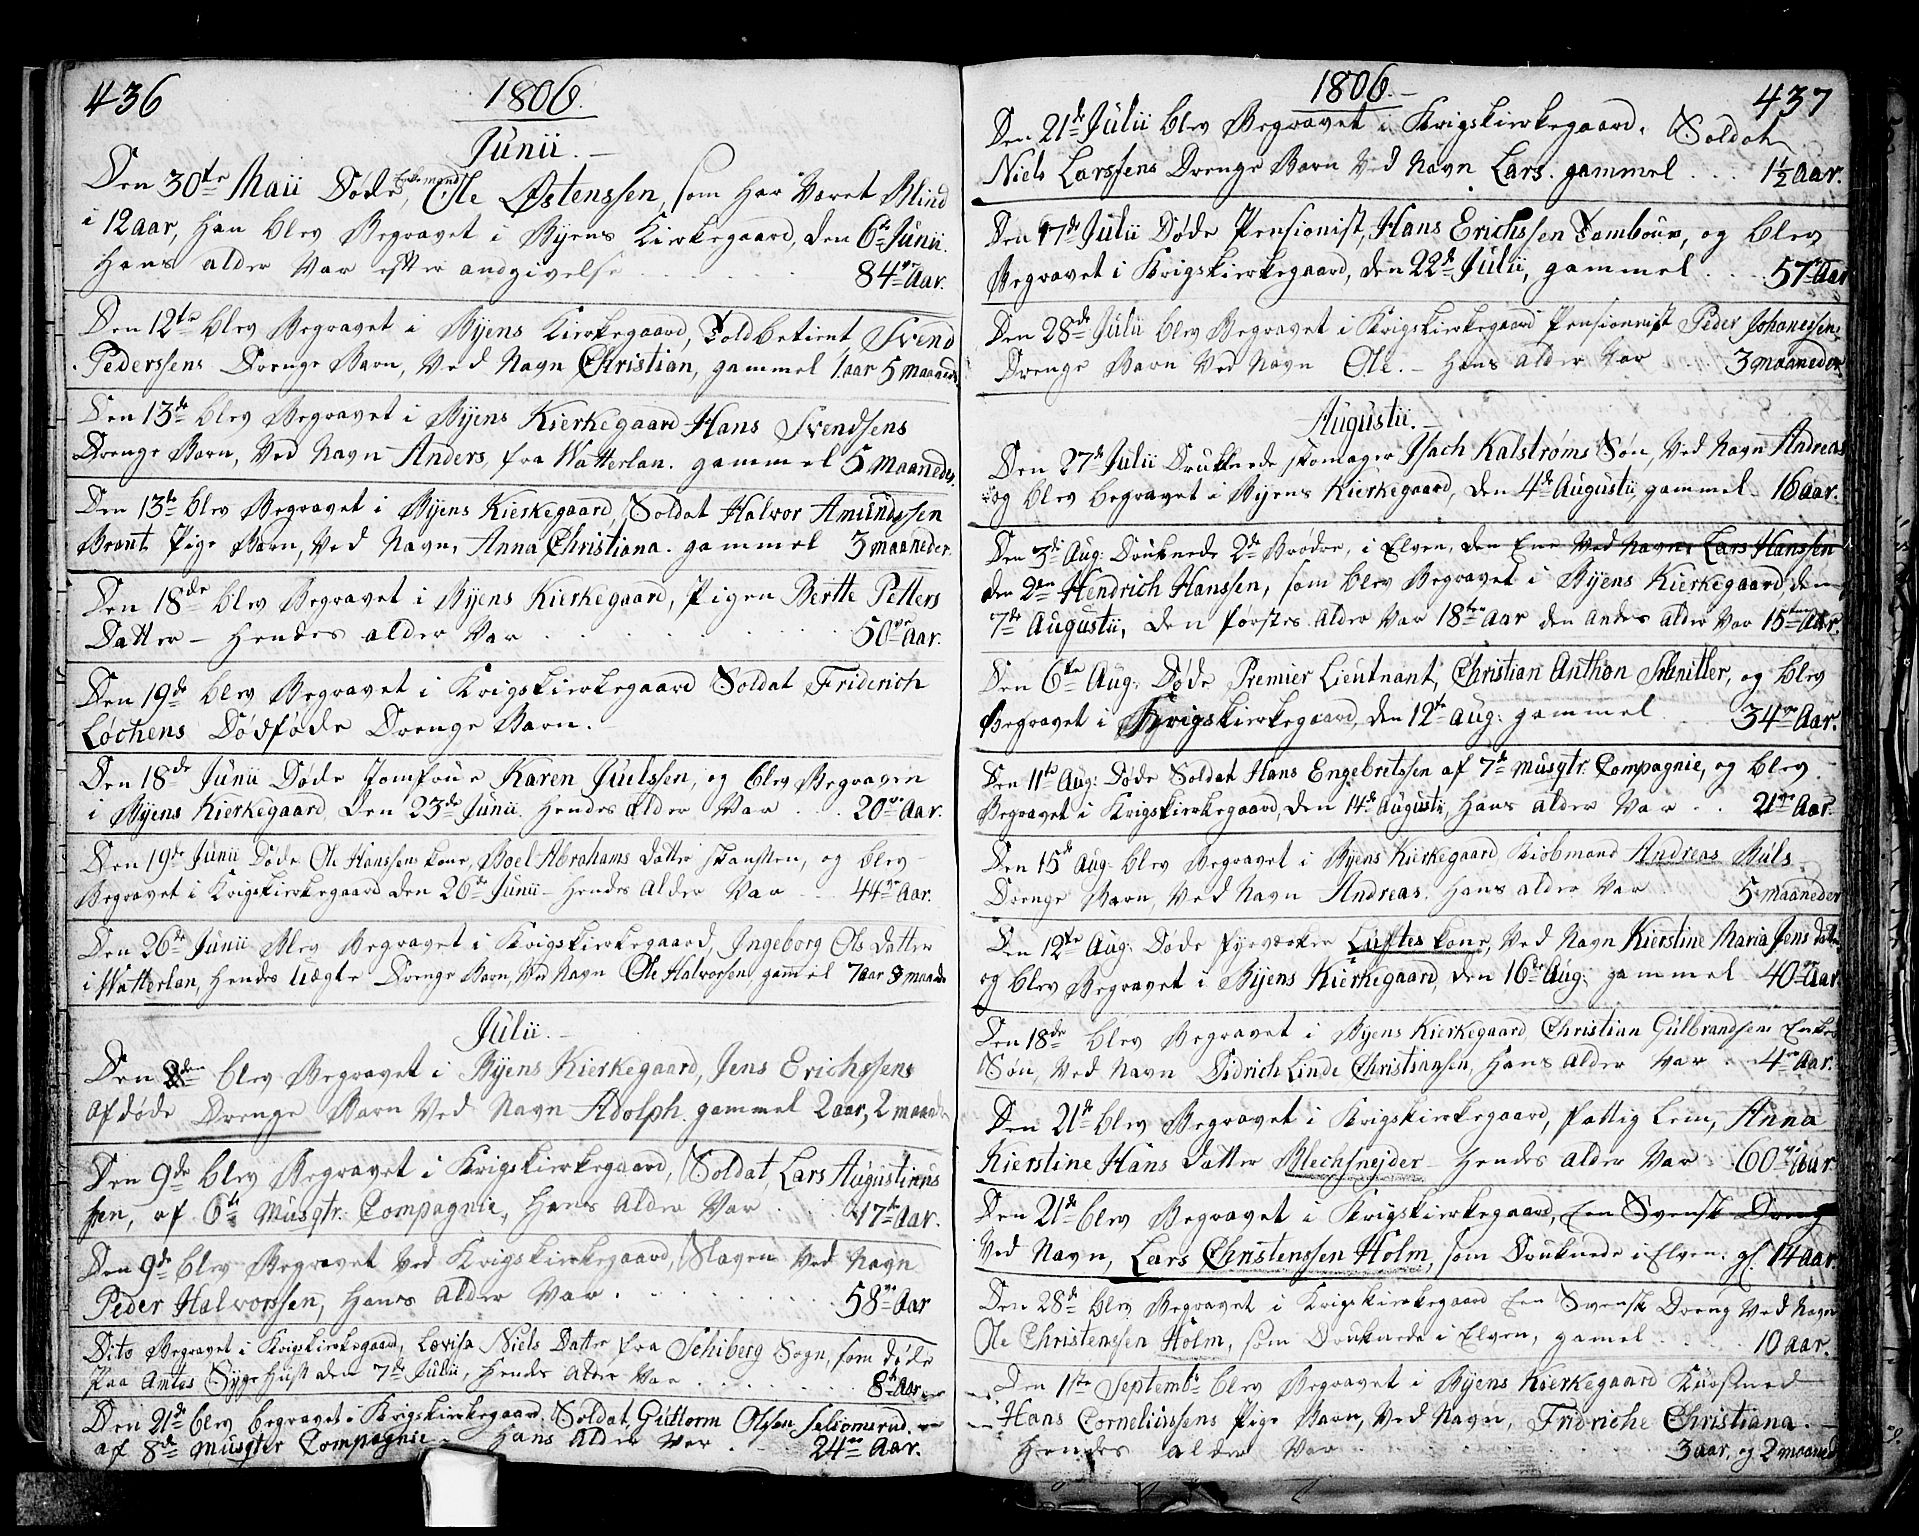 436
1806.
Junii.
Den 30te Maii Døde, Enkemand Ole Østenssen, som har Været Blind
i 12 aar, Han blev Begravet i Byens Kierkegaard, den 6te Junii.
Hans alder Var efter andgivelse . . . . 84ve Aar.
Den 12te blev Begravet i Byens Kierkegaard, Toldbetient Svend
Pederssens Drenge Barn, Ved Navn Christian, gammel 1 aar 5 maaneder
Den 13de blev Begravet i Byens Kierkegaard Hans Svendsens
Drenge Barn, Ved Navn Anders, fra Watterlan. gammel 5 Maaneder.
Den 13te blev Begravet i Byens Kierkegaard, Soldat Halvor Amundssen
Brant. Pige Barn, Ved Navn, Anna Christiana. gammel 3 maaneder.
Den 18de blev Begravet i Byens Kierkegaard, Pigen Berte Petters
Datter – Hendes alder Var . . . . 50ve Aar.
Den 19de blev Begravet i Krigskierkegaard Soldat Friderich
Løchens Dødføde Drenge Barn.
Den 18de Junii Døde Jomfrue Karen Juulssen, og blev Begraven
i Byens Kierkegaard, Den 23de Junii. Hendes alder Var . . 20ve Aar.
Den 19de Junii Døde Ole Hanssens kone, Boel Abrahams datter skansten, og blev
Begravet i Krigskierkegaard den 26de Junii – Hendes alder Var . . 44ve Aar.
Den 26de Junii Blev Begravet i Krigskierkegaard, Ingeborg Ols datter
i Watterlan, Hendes Uægte Drenge Barn, Ved Navn Ole Halvorsen, gammel 7 aar 8 maaneder
Julii.
Den 8de blev Begravet i Byens Kierkegaard, Jens Erichssens
afdøde Drenge Barn Ved Navn Adolph. gammel 2 aar, 2 maaneder
Den 9de blev Begravet i Krigskierkegaard, Soldat Lars Augustinus
sen, af 6te Musqtr. Compagnie, Hans Alder Var . . . 17te Aar.
Den 9de blev Begravet Ved Krigskierkegaard, Slaven Ved Navn
Peder Halvorssen, Hans Alder Var . . . . 58ve Aar
Dito Begravet i Krigskierkegaard, Lovisa Niels Datter fra Schiberg Sogn, som døde
paa Amtes Sygehust den 7de Julii, Hendes Alder Var . . . 8te Aar.
Den 21de blev begravet i Krigskierkegaard. Soldat, Guttorm Olssen
af 8de Musqter Compagnie – Hans Alder Var . . 24ve Aar.
1806.
437
Den 21de Julii blev Begravet i Krigskierkegaard. Soldat
Niels Larssens Drenge Barn Ved Navn Lars. gammel . . . 1½ Aar.
Den 17de Julii Døde Pensionist, Hans Erichssen Tambour, og blev
Begravet i Krigskierkegaard, den 22de Julii, gammel . . . 57 Aar
Den 28de Julii blev Begravet i Krigskierkegaard Pensionnist Peder Johanessens
Drenge Barn Ved Navn Ole. – Hans Alder Var . . 3 maaneder
Augustii.
Den 27de Julii Druknede skomager Isach Kalstrøms Søn, Ved Navn Andreas
og blev begravet i Byens Kierkegaard, Den 4de Augustii, gammel – 16 aar.
Den 3die Aug: Druknede 2de Brødre, i Elven, den Ene Ved Navn: Lars Hanssen
den 2den Hendrich Hanssen, som blev Begravet i Byens Kierkegaard, den
7de Augustii, Den førstes Alder Var 18ten Aar den Andes Alder Var 15ten Aar.
Den 6te Aug: Døde Premier Lieutnant, Christian Anthon Schnitler, og blev
Begravet i Krigskierkegaard, den 12te Aug: gammel . . 34ve Aar.
Den 11te Aug: Døde Soldat Hans Engebretssen af 7de Musqtr. Compagnie, og blev
Begravet i Krigskierkegaard, den 14de Augustii, Hans Alder Var . . 21ve Aar.
Den 15de Aug: blev Begravet i Byens Kierkegaard Kiøbmand Andreas Buls
Drenge Barn, Ved Navn Andreas. Hans Alder Var . . 5 maaneder
Den 12te Aug: Døde Luftes kone, Ved Navn Kierstine Maria Jens datter
og blev Begravet i Byens Kierkegaard, den 16de Aug: gammel – 40ve Aar.
Den 18de blev Begravet i Byens Kierkegaard Christian Gulbrandsens Enkes
Søn, Ved Navn Didrich Linde Christiansen, Hans Alder Var – 4ve Aar.
Den 21de blev Begravet i Krigskierkegaard, Fattig Lem, Anna
Kierstine Hans datter Blechsnejder – Hendes Alder Var . 60ve Aar.
Den 21de blev Begravet i Krigskierkegaard, Een Svensk Dreng
Ved Navn, Lars Christenssen Holm, som Druknede i Elven. gl. 14 aar.
Den 28de blev Begravet i Krigskierkegaard Een Svensk Dreng Ved Navn
Ole Christenssen Holm, som Druknede i Elven, gamel . . 10 aar.
Den 1ste Septembr blev Begravet i Byens Kierkegaard Kudsmed
Hans Corneliussens Pige Barn, Ved Navn, Fridriche Christiana. –
Hendes Alder Var . . . 3 aar, og 2 maaneder